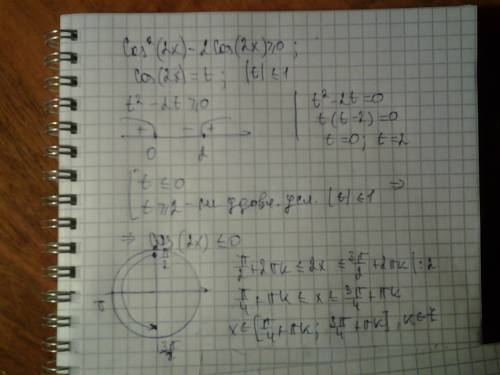 cos²(2x) - 2cos(2x) ≥ 0 ;
cos(2x) = t ; |t| ≤ 1
t² - 2t ≥ 0
+ - +
0 2
t² - 2t = 0
t(t-2) = 0
t = 0; t = 2
[ t ≤ 0
t ≥ 2 - не удовл. усл. |t| ≤ 1 ⇒
⇒ cos(2x) ≤ 0
π/2
π
3π/2
π/2 + 2πk ≤ 2x ≤ 3π/2 + 2πk | :2
π/4 + πk ≤ x ≤ 3π/4 + πk
x ∈ [π/4 + πk ; 3π/4 + πk], k ∈ Z